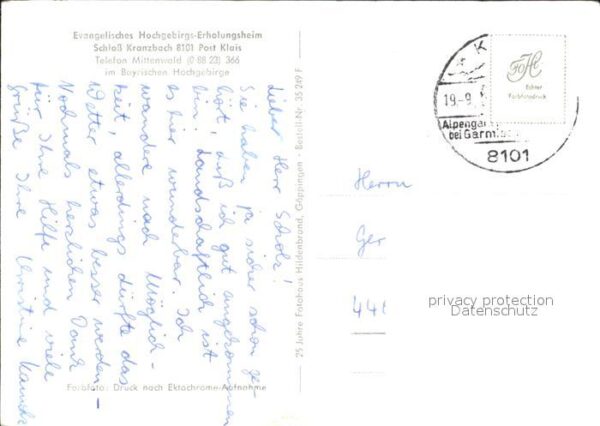 Evangelisches Hochgebirgs-Erholungsheim
Schloß Kranzbach 8101 Post Klais
Telefon Mittenwald (0 88 23) 366
im Bayrischen Hochgebirge
Lieber Herr Scholz!
Sie haben ja sicher schon ge-
hört, daß ich gut angekommen
bin. Landschaftlich ist
es hier wunderbar. Ich
wandre nach Möglich-
keit, allerdings dürfte das
Wetter etwas besser werden –
Nochmals herzlichen Dank
für Ihre Hilfe und viele
Grüße Ihre Christine
Farbfoto: Druck nach Ektachrome-Aufnahme
25 Jahre Fotohaus Hildenbrand, Göppingen · Bestell-Nr. 35 249 F
K
19.-9.
Alpeng
bei Garm
8101
FoHi
Echter
Farbfotodruck
Herrn
Ger
44
privacy protection
Datenschutz